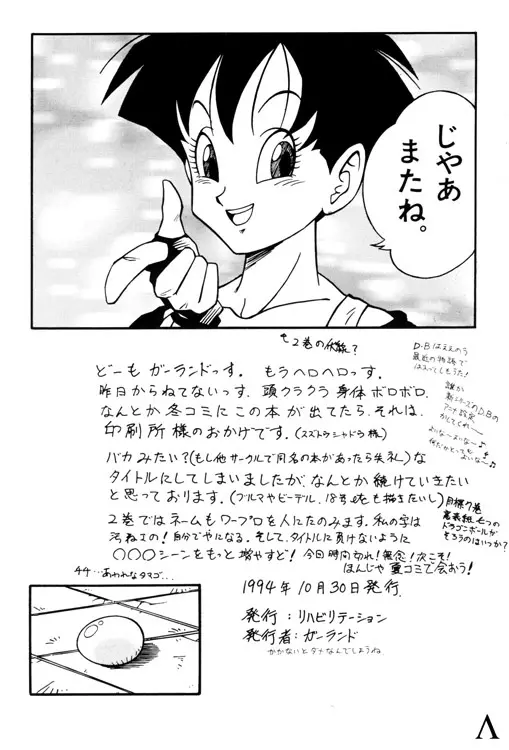 じゃあ
またね。
2巻の伏線?
どーも ガーランドっす。 もうヘロヘロっす。
昨日からねてないっす、頭クラクラ 身体 ボロボロ、
なんとか 冬コミに この本 が 出てたら、それは、
印刷所様のおかげです。(スズトウシャドウ様)
バカみたい?(もし他サークルで同名の本があったら失礼)な
タイトルにしてしまいましたが、なんとか 続けていきたい
と思っております。(ブルマやビーデル、18号も描きたいし)
2巻ではネームもワープロを人にたのみます。私の字は
自分でやになる。そして、タイトルに負けないように
〇〇〇シーンをもっと増やすど! 今日時間切れ!無念!次こそ!
ほんじゃ 夏コミで会おう!
D・Bはええのう
最近の物語で
誰か
新シリーズのD.Bの
アニメ設定
よいな〜
目標7巻
裏表紙 七つの
ドラゴンボールが
そろうのはいつか?
44…あわれなタマゴ…
1994年10月30日発行.
発行:リハビリテーション
発行者:ガーランド
かかないとダメなんでしょうね